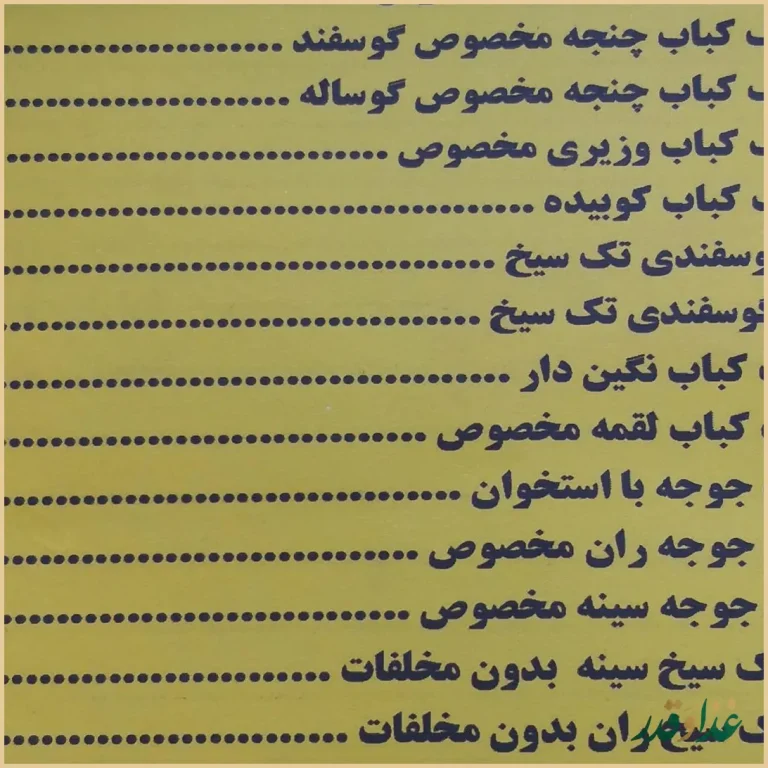 کباب چنجه مخصوص گوسفند ....................
کباب چنجه مخصوص گوساله ....................
کباب وزیری مخصوص ............................
کباب کوبیده ......................................
وسفندی تک سیخ ...................................
گوسفندی تک سیخ ..................................
کباب نگین دار ....................................
کباب لقمه مخصوص ..............................
جوجه با استخوان .................................
جوجه ران مخصوص ..............................
جوجه سینه مخصوص .............................
ک سیخ سینه بدون مخلفات .......................
ک سیخ ران بدون مخلفات ........................